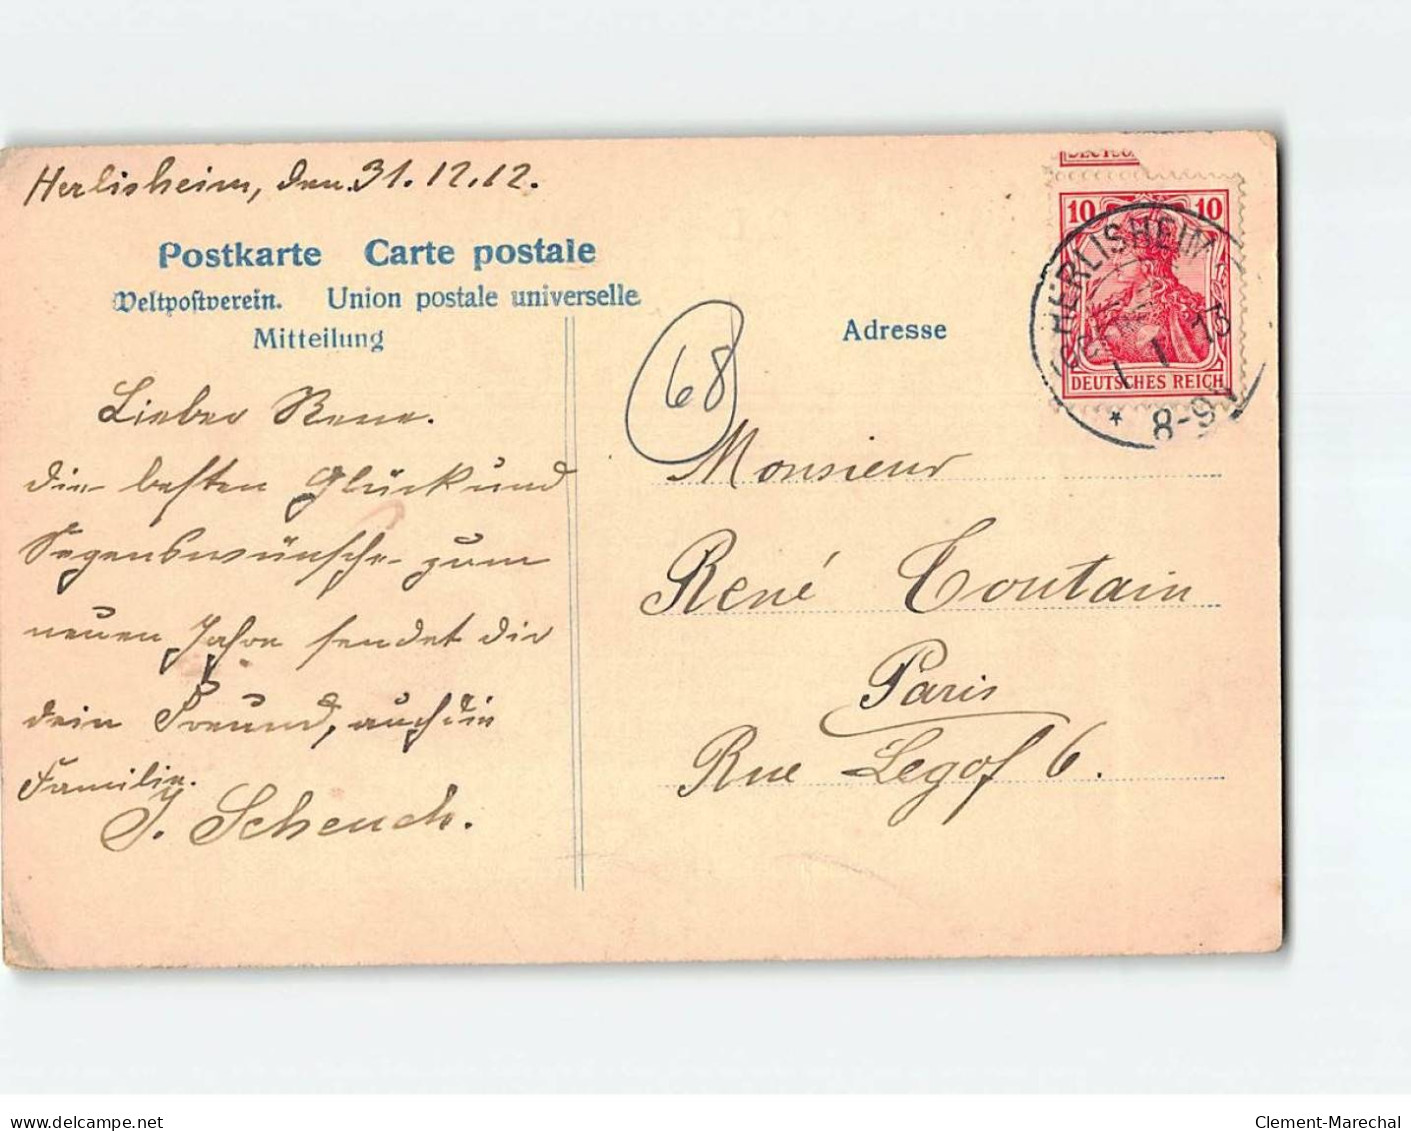 Herlisheim, den 31. 12. 12.
Postkarte Carte postale
Weltpostverein. Union postale universelle
Mitteilung
Adresse
68
DEUTSCHES REICH
10 10
DEUTSCHES REICH
HERLISHEIM
1 1 13
* 8-9V
Lieber Rene.
die besten Glück und
Segenswünsche zum
neuen Jahre sendet dir
dein Freund, auch die
Familie.
J. Scheuch.
Monsieur
René Coutain
Paris
Rue Legof 6.
www.delcampe.net
Clement-Marechal